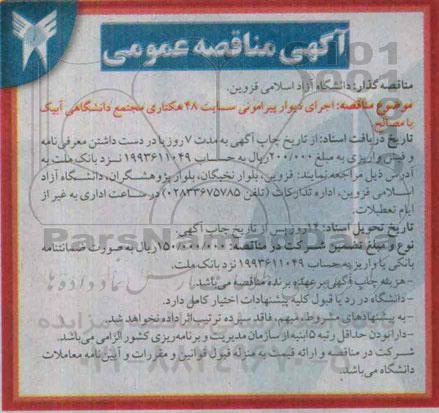 آگهی مناقصه عمومی
مناقصه گذار: دانشگاه آزاد اسلامی قزوین.
موضوع مناقصه: اجرای دیوار پیرامونی سایت ۴۸ هکتاری مجتمع دانشگاهی آبیک
با مصالح
تاریخ دریافت اسناد: از تاریخ چاپ آگهی به مدت ۷ روز با در دست داشتن معرفی نامه
و فیش واریزی به مبلغ ۲۰۰/۰۰۰ ریال به حساب ۱۹۹۳۶۱۱۰۴۹ نزد بانک ملت به
آدرس ذیل مراجعه نمایند: قزوین، بلوار نخبگان، بلوار پژوهشگران، دانشگاه آزاد
اسلامی قزوین، اداره تدارکات (تلفن ۰۲۸۳۳۶۷۵۷۸۵) در ساعات اداری به غیر از
ایام تعطیلات.
تاریخ تحویل اسناد: ۱۴ روز پس از تاریخ چاپ آگهی.
نوع و مبلغ تضمین شرکت در مناقصه: ۱۵۰/۰۰۰/۰۰۰ ریال به صورت ضمانتنامه
بانکی یا واریز به حساب ۱۹۹۳۶۱۱۰۴۹ نزد بانک ملت.
- هزینه چاپ آگهی بر عهده برنده مناقصه می باشد.
- دانشگاه در رد یا قبول کلیه پیشنهادات اختیار کامل دارد.
- به پیشنهادهای مشروط، مبهم، فاقد سپرده ترتیب اثر داده نخواهد شد.
- دارا بودن حداقل رتبه ۵ ابنیه از سازمان مدیریت و برنامه ریزی کشور الزامی می باشد.
شرکت در مناقصه و ارائه قیمت به منزله قبول قوانین و مقررات و آیین نامه معاملات
دانشگاه می باشد.